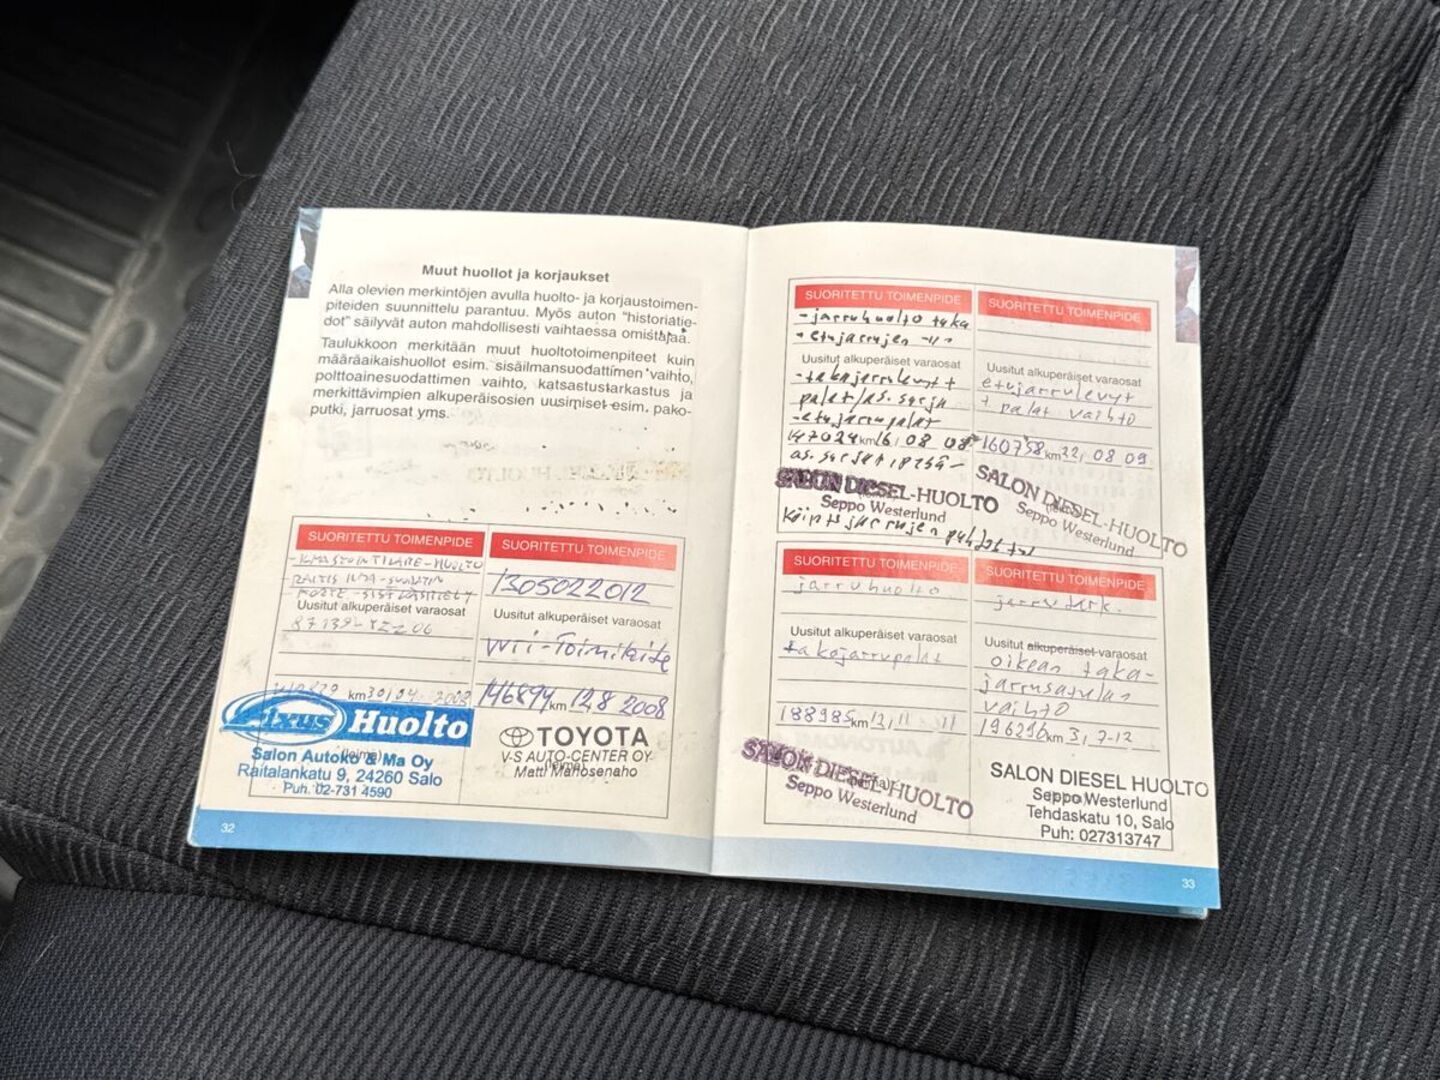 Muut huollot ja korjaukset
Alla olevien merkintöjen avulla huolto- ja korjaustoimen-
piteiden suunnittelu parantuu. Myös auton "historiatie-
dot" säilyvät auton mahdollisesti vaihtaessa omistajaa.
Taulukkoon merkitään muut huoltotoimenpiteet kuin
määräaikaishuollot esim. sisäilmansuodattimen vaihto,
polttoainesuodattimen vaihto, katsastustarkastus ja
merkittävimpien alkuperäisosien uusimiset esim. pako-
putki, jarruosat yms.
SUORITETTU TOIMENPIDE
-ILMASTOINTILAITE-HUOLTO
RAITIS ILMA-SUODATIN
Uusitut alkuperäiset varaosat
87139-YZZ06
km 30/04 2008
Fixus Huolto
(leima)
Salon Autoko & Ma Oy
Raitalankatu 9, 24260 Salo
Puh. 02-731 4590
SUORITETTU TOIMENPIDE
1305022012
Uusitut alkuperäiset varaosat
VVTi-Toimilaite
146894 km 12.8 2008
TOYOTA
V-S AUTO-CENTER OY
(leima)
32
SUORITETTU TOIMENPIDE
-jarruhuolto taka
-etujarrujen -"-
Uusitut alkuperäiset varaosat
-takajarrulevyt +
palat/as. sarja
-etujarrupalat
147024 km 16, 08 08
SALON DIESEL-HUOLTO
Seppo Westerlund
SUORITETTU TOIMENPIDE
Uusitut alkuperäiset varaosat
etujarrulevyt
+ palat vaihto
160758 km 22, 08 09
SALON DIESEL-HUOLTO
(leima)
Seppo Westerlund
SUORITETTU TOIMENPIDE
jarruhuolto
Uusitut alkuperäiset varaosat
takajarrupalat
188985 km 13, 11 11
SALON DIESEL-HUOLTO
(leima)
Seppo Westerlund
SUORITETTU TOIMENPIDE
jarrutark.
Uusitut alkuperäiset varaosat
oikean taka-
jarrusatulan
vaihto
196296 km 3, 7-12
SALON DIESEL HUOLTO
Seppo Westerlund
Tehdaskatu 10, Salo
Puh: 027313747
33